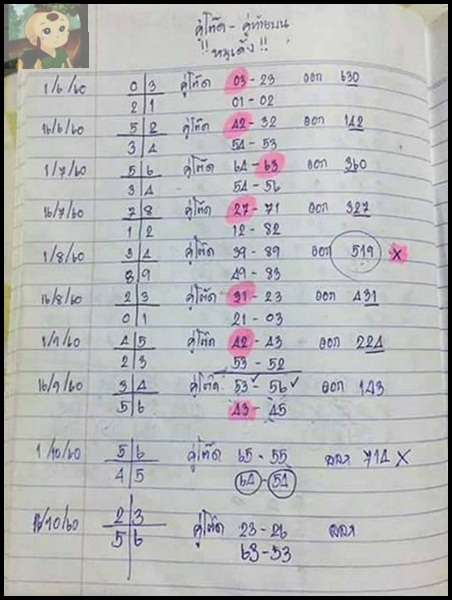 คู่โต๊ด - คู่ท้ายบน
!! หมูเด้ง !!
1/6/60 0 3 คู่โต๊ด 03 - 23 ออก 630
2 1 01 - 02
16/6/60 5 2 คู่โต๊ด 42 - 32 ออก 142
3 4 54 - 53
1/7/60 5 6 คู่โต๊ด 64 - 63 ออก 360
3 4 54 - 56
16/7/60 7 8 คู่โต๊ด 27 - 71 ออก 327
1 2 12 - 82
1/8/60 3 4 คู่โต๊ด 39 - 89 ออก 519 x
8 9 49 - 83
16/8/60 2 3 คู่โต๊ด 31 - 23 ออก 431
0 1 21 - 03
1/9/60 4 5 คู่โต๊ด 42 - 43 ออก 224
2 3 53 - 52
16/9/60 3 4 คู่โต๊ด 53 ✓ - 56 ✓ ออก 143
5 6 43 - 45
1/10/60 5 6 คู่โต๊ด 65 - 55 ออก 714 X
4 5 64 - 54
16/10/60 2 3 คู่โต๊ด 23 - 26 ออก
5 6 63 - 53